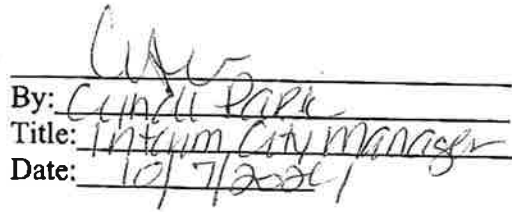 By: Cyndi Papic
Title: Interim City Manager
Date: 10/7/2024